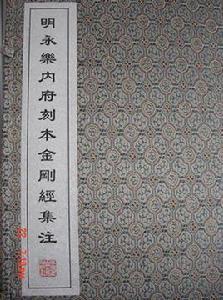 明永樂內府刻本金剛經集注